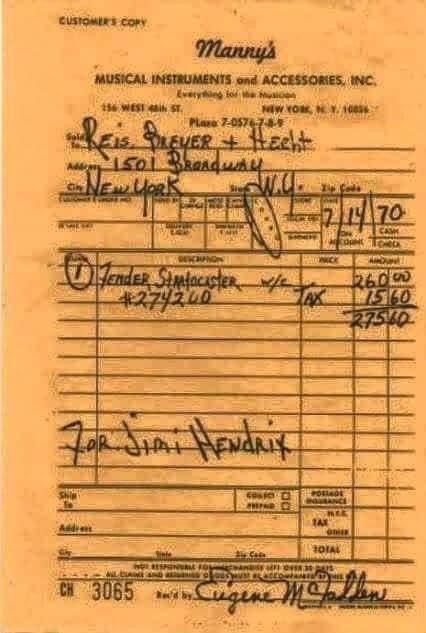 CUSTOMER'S COPY
Manny's
MUSICAL INSTRUMENTS and ACCESSORIES, INC.
Everything for the Musician
156 WEST 48th ST. NEW YORK, N. Y. 10036
PLaza 7-0576-7-8-9
Sold To REIS, BREYER + HECHT
Address 1501 BROADWAY
City NEW YORK State N.Y. Zip Code
DATE
7/14/70
ON ACCOUNT CASH CHECK
DESCRIPTION PRICE AMOUNT
1 FENDER STRATOCASTER w/c 260 00
#274260 TAX 15 60
275 60
FOR JIMI HENDRIX
Ship To COLLECT PREPAID POSTAGE INSURANCE
Address TAX N.Y.C. OTHER
City State Zip Code TOTAL
NOT RESPONSIBLE FOR MERCHANDISE LEFT OVER 30 DAYS
ALL CLAIMS AND RETURNED GOODS MUST BE ACCOMPANIED BY THIS
CH 3065 Rec'd by Eugene McFadden